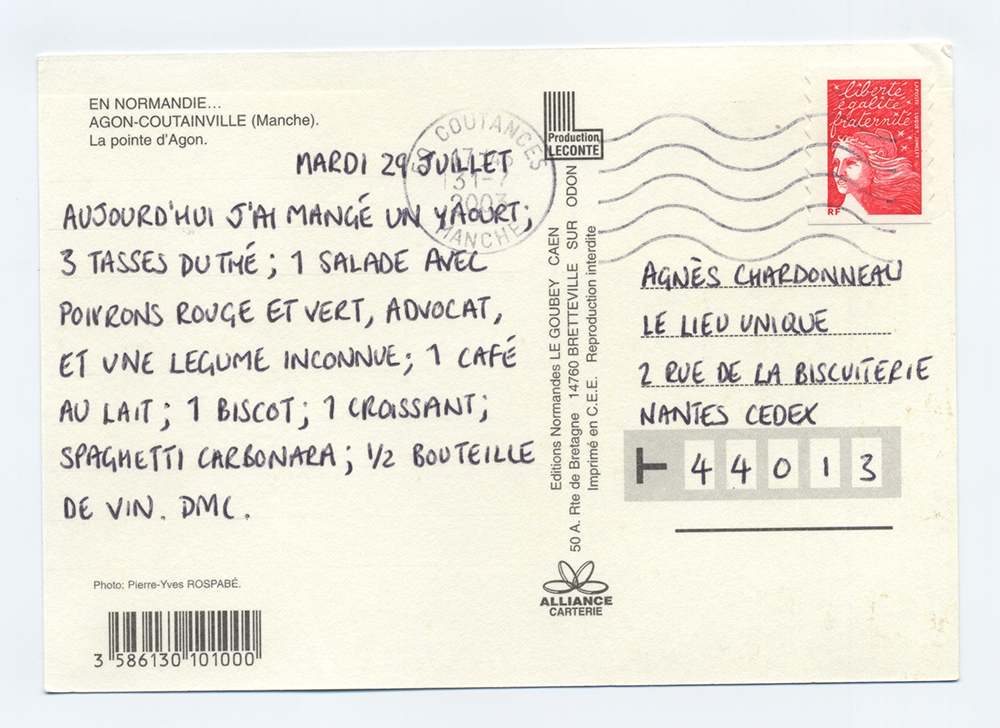 EN NORMANDIE...
AGON-COUTAINVILLE (Manche).
La pointe d'Agon.
MARDI 29 JUILLET
AUJOURD'HUI J'AI MANGÉ UN YAOURT;
3 TASSES DU THÉ; 1 SALADE AVEC
POIVRONS ROUGE ET VERT, ADVOCAT,
ET UNE LEGUME INCONNUE; 1 CAFÉ
AU LAIT; 1 BISCOT; 1 CROISSANT;
SPAGHETTI CARBONARA; 1/2 BOUTEILLE
DE VIN. DMC.
Photo: Pierre-Yves ROSPABÉ.
3 586130 101000
COUTANCES
31-7
2003
MANCHE
Production
LECONTE
Editions Normandes LE GOUBEY CAEN
50 A. Rte de Bretagne 14760 BRETTEVILLE SUR ODON
Imprimé en C.E.E. Reproduction interdite
ALLIANCE
CARTERIE
liberté
égalité
fraternité
RF
AGNÈS CHARDONNEAU
LE LIEU UNIQUE
2 RUE DE LA BISCUITERIE
NANTES CEDEX
44013